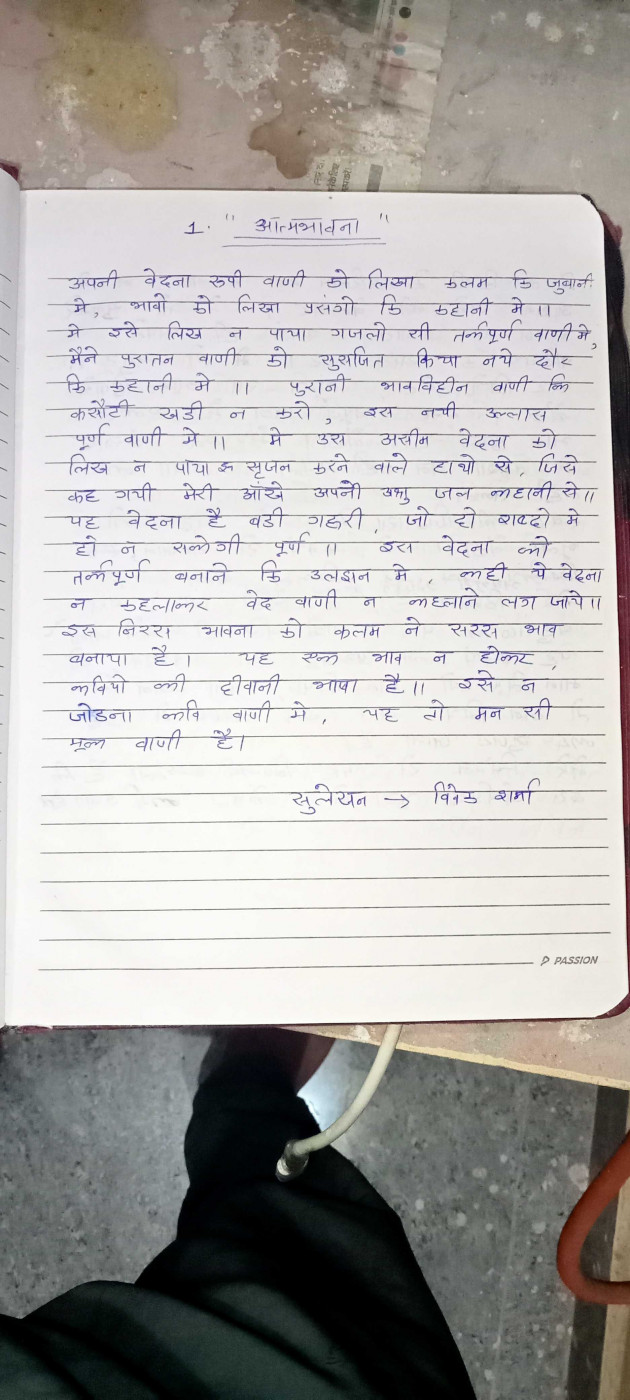 1. " आत्मभावना "
अपनी वेदना रुपी वाणी को लिखा कलम कि जुबानी
मे, भावो को लिखा प्रसंगो कि कहानी मे ॥
मे इसे लिख न पाया गजलो सी तर्कपूर्ण वाणी मे,
मैने पुरातन वाणी को सुसजित किया नये दौर
कि कहानी मे ॥ पुरानी भावविहीन वाणी कि
कसौटी खडी न करो, इस नयी उल्लास
पूर्ण वाणी मे ॥ मे उस असीम वेदना को
लिख न पाया सृजन करने वाले हाथो से, जिसे
कह गयी मेरी आँखे अपनी अश्रु जल कहानी से ॥
यह वेदना है बडी गहरी, जो दो शब्दो मे
हो न सकेगी पूर्ण ॥ इस वेदना को
तर्कपूर्ण बनाने कि उलझन मे, कही ये वेदना
न कहलाकर वेद वाणी न कहलाने लग जाये ॥
इस निरस भावना को कलम ने सरस भाव
बनाया है। यह एक भाव न होकर,
कवियो की दीवानी भाषा है ॥ इसे न
जोडना कवि वाणी मे, यह तो मन सी
मूक वाणी है।
सुलेखन → विवेक शर्मा
PASSION